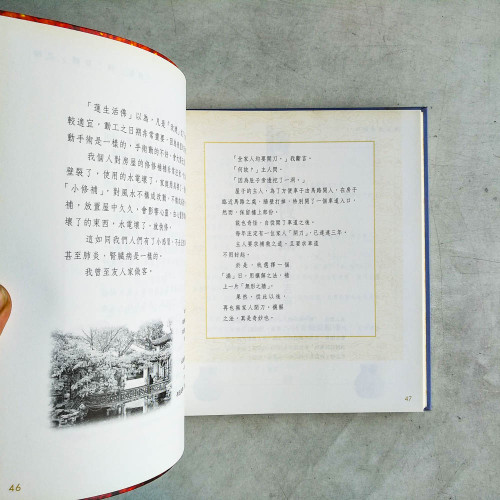 「蓮生活佛」以為，凡是「
較適宜，動工之日期非常重要，
動手術是一樣的，手術動的不
我個人對房屋的修修補補
壁裂了，使用的水電壞了，
「小修補」，對風水不構成
補，放置屋中久久，會影響
壞了的東西，水電壞了，就
這如同我們人們有了小感冒，不
甚至肺炎、腎臟病是一樣的。
我曾至友人家做客。
46
「全家人均要開刀。」我斷言。
「何故？」主人問。
「因為屋子旁邊挖了一洞。」
屋子的主人，為了方便車子由馬路開入，在房子
臨近馬路之處，牆壁打掉，特別開了一個車道入口，
然而，保留牆上部份。
說也奇怪，自從開了車道之後，
每年正定有一位家人「開刀」，已連連三年。
主人要求補救之道，且要求車道
不用封起。
於是，我選擇一個
「滿」日，用禳解之法，補
上一片「無形之牆」。
果然，從此以後，
再也無家人開刀，禳解
之法，真是奇妙也。
47